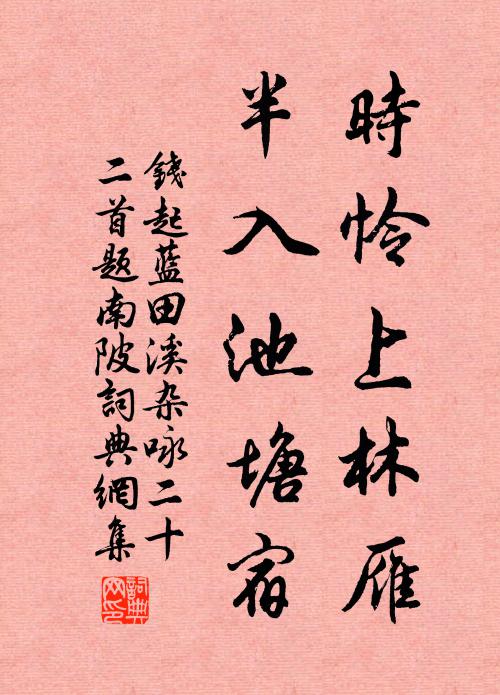 時怜上林雁
半入池塘宿
錢起藍田溪杂咏二十
二首题南陂詞典網集
詞典网印